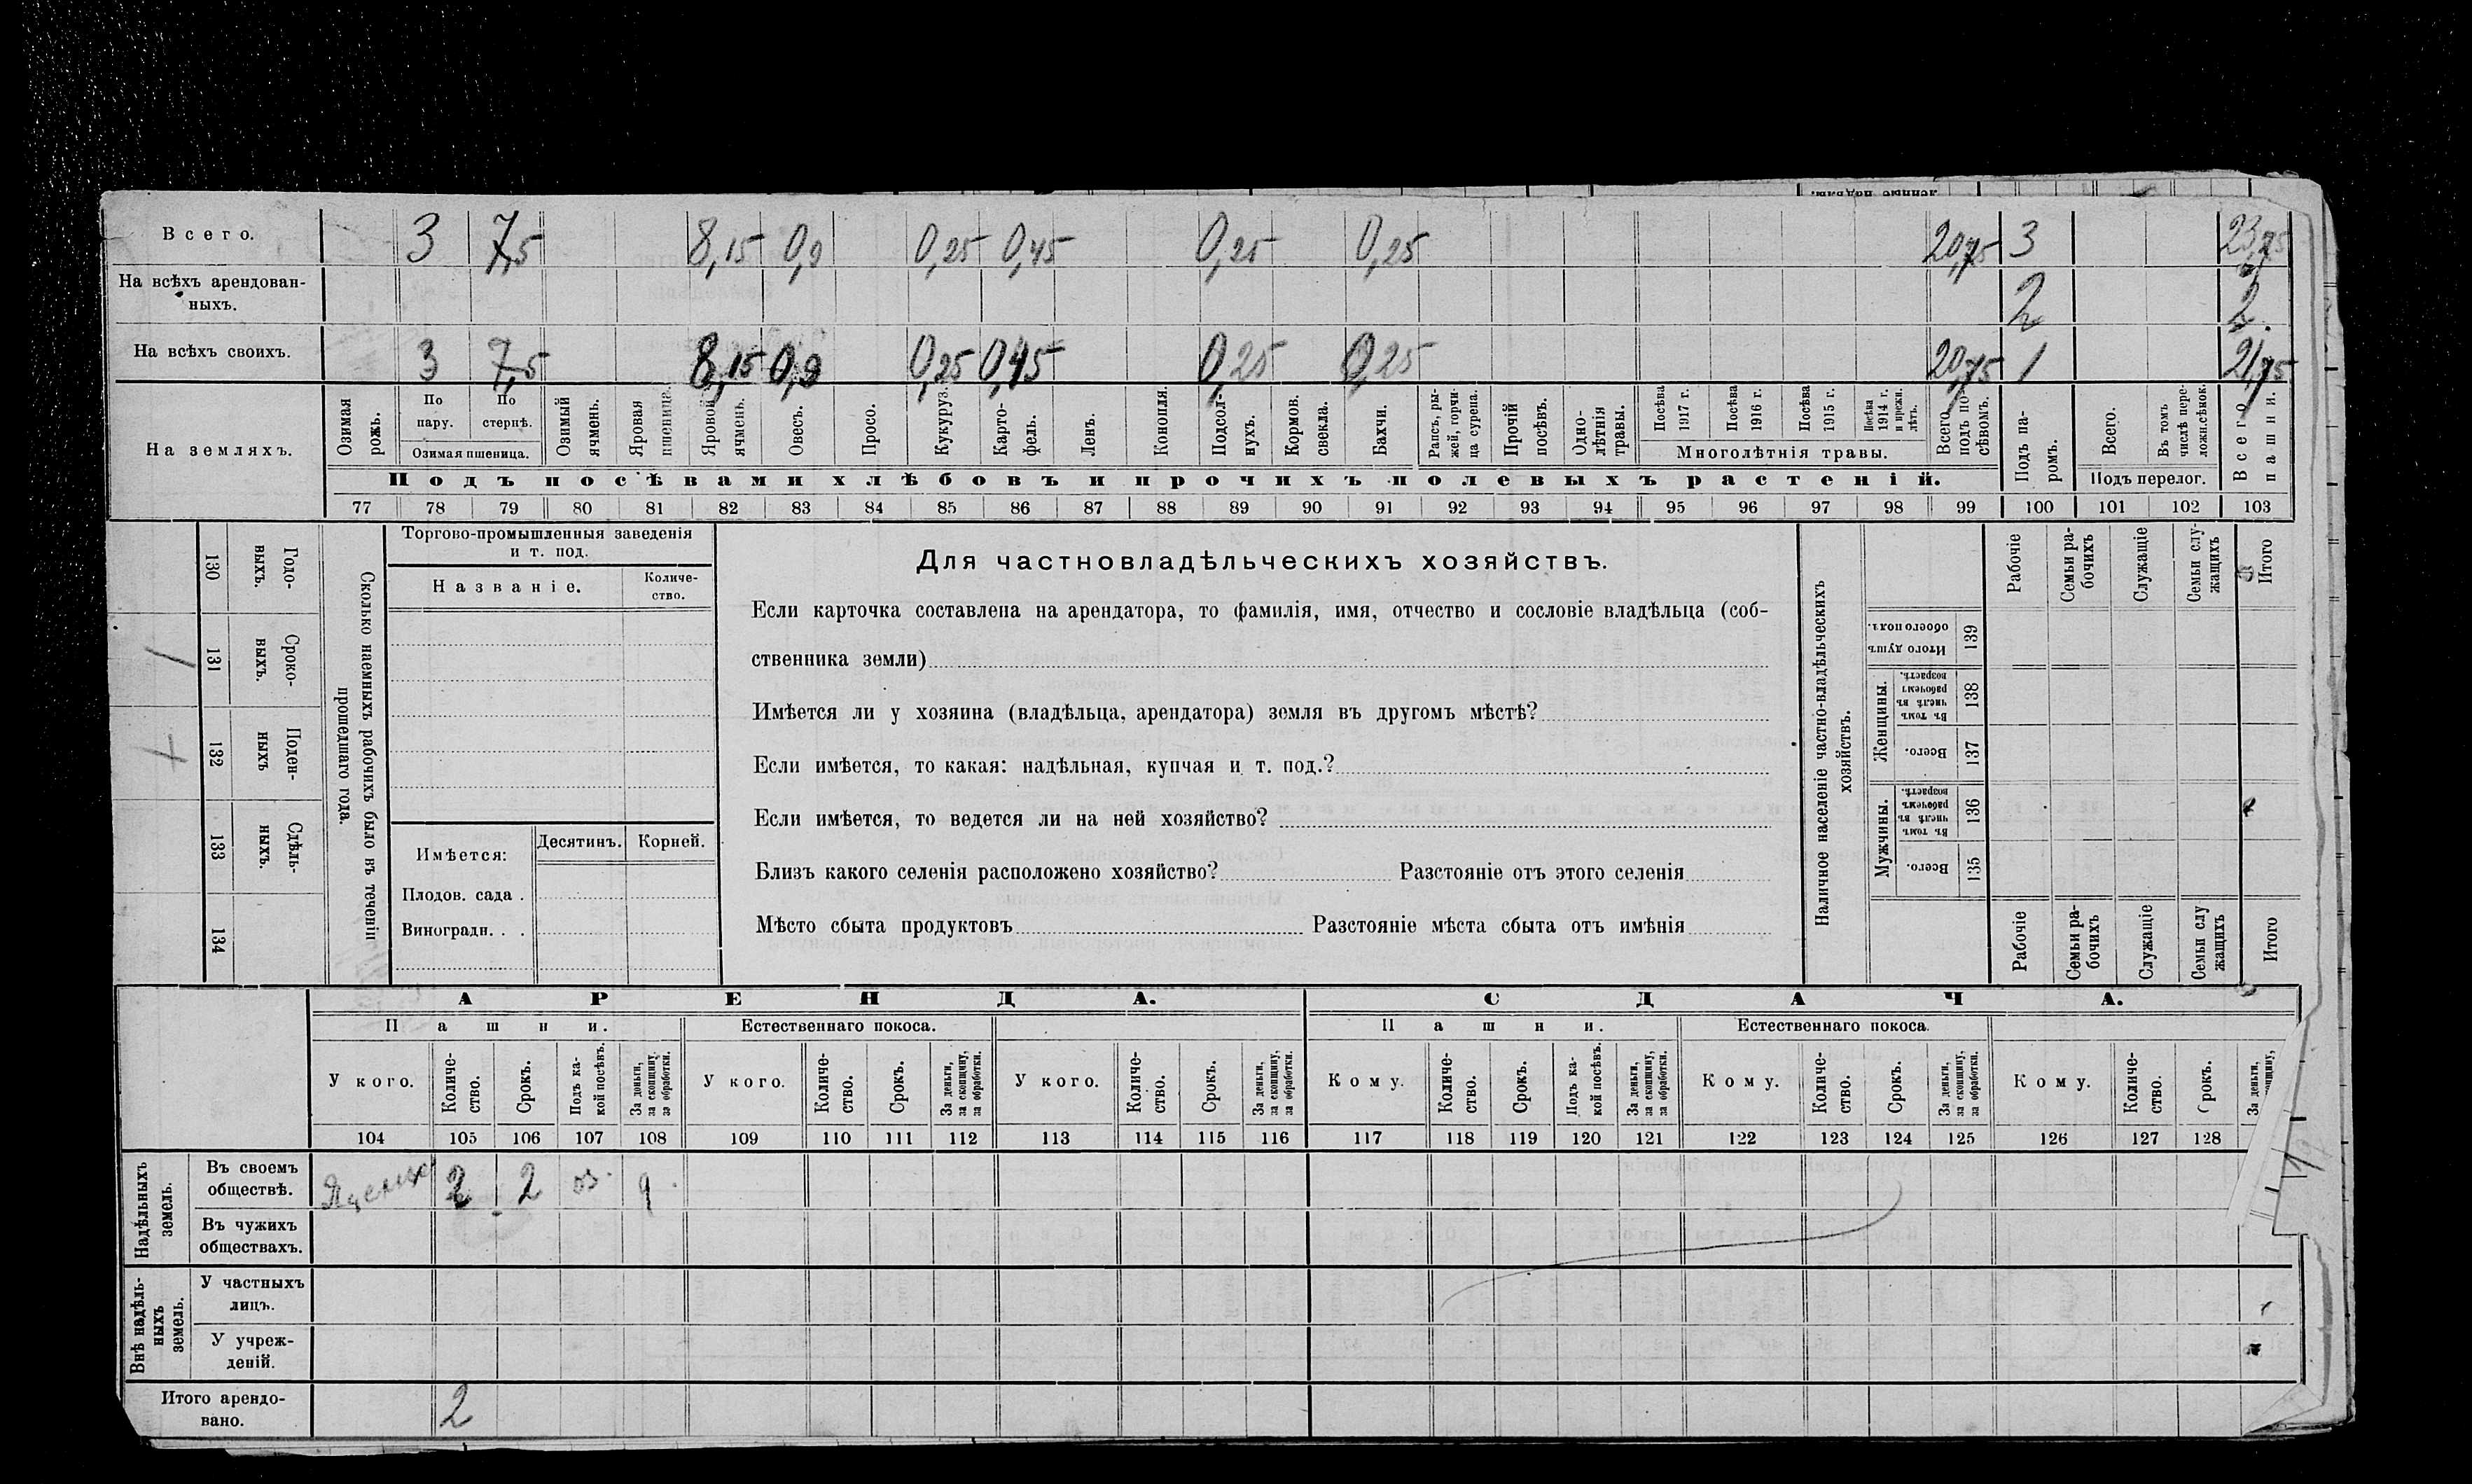 Всего. 3 7,5 8,15 0,9 0,25 0,45 0,25 0,25 20,75 3 23,75
На всѣхъ арендован-
ныхъ. 2 2
На всѣхъ своихъ. 3 7,5 8,15 0,9 0,25 0,45 0,25 0,25 20,75 1 21,75
На земляхъ.
Озимая рожь.
По пару.
По стернѣ.
Озимая пшеница.
Озимый ячмень.
Яровая пшеница.
Яровой ячмень.
Овесъ.
Просо.
Кукуруз.
Карто-
фель.
Ленъ.
Конопля.
Подсол-
нухъ.
Кормов. свекла.
Бахчи.
Рапсъ, ры-
жей, горчи-
ца сурепа.
Прочій посѣвъ.
Одно-
лѣтнія травы.
Посѣва 1917 г.
Посѣва 1916 г.
Посѣва 1915 г.
Посѣва 1914 г. и прежн. лѣтъ.
Многолѣтнія травы.
Всего подъ по-
сѣвомъ.
Подъ па-
ромъ.
Всего.
Въ томъ числѣ пере-
ложн.сѣнок.
Подъ перелог.
Всего пашни.
Подъ посѣвами хлѣбовъ и прочихъ полевыхъ растеній.
77 78 79 80 81 82 83 84 85 86 87 88 89 90 91 92 93 94 95 96 97 98 99 100 101 102 103
Сколько наемныхъ рабочихъ было въ теченіи
прошедшаго года.
Годо-
выхъ. 130
Сроко-
ныхъ. 131
Поден-
ныхъ 132
Сдѣль-
ныхъ. 133
134
Торгово-промышленныя заведенія
и т. под.
Названіе.
Количе-
ство.
Имѣется:
Десятинъ.
Корней.
Плодов. сада .
Виноградн. . .
Для частновладѣльческихъ хозяйствъ.
Если карточка составлена на арендатора, то фамилія, имя, отчество и сословіе владѣльца (соб-
ственника земли)
Имѣется ли у хозяина (владѣльца, арендатора) земля въ другомъ мѣстѣ?
Если имѣется, то какая: надѣльная, купчая и т. под.?
Если имѣется, то ведется ли на ней хозяйство?
Близъ какого селенія расположено хозяйство? Разстояніе отъ этого селенія
Мѣсто сбыта продуктовъ Разстояніе мѣста сбыта отъ имѣнія
Наличное населеніе частно-владѣльческихъ
хозяйствъ.
Рабочіе
Семьи ра-
бочихъ
Служащіе
Семьи слу-
жащихъ
Итого
Итого душъ обоего пола. 139
Женщины.
Въ томъ числѣ въ рабочемъ возрастѣ. 138
Всего. 137
Мужчины.
Въ томъ числѣ въ рабочемъ возрастѣ. 136
Всего. 135
Рабочіе
Семьи ра-
бочихъ
Служащіе
Семьи слу
жащихъ
Итого
АРЕНДА. СДАЧА.
Пашни. Естественнаго покоса. Пашни. Естественнаго покоса.
У кого.
Количе-
ство.
Срокъ.
Подъ ка-
кой посѣвъ.
За деньги, за скопщину, за обработки.
У кого.
Количе-
ство.
Срокъ.
За деньги, за скопщину, за обработки.
У кого.
Количе-
ство.
Срокъ.
За деньги, за скопщину, за обработки.
Кому.
Количе-
ство.
Срокъ.
Подъ ка-
кой посѣвъ.
За деньги, за скопщину, за обработки.
Кому.
Количе-
ство.
Срокъ.
За деньги, за скопщину, за обработки.
Кому.
Количе-
ство.
Срокъ.
За деньги,
104 105 106 107 108 109 110 111 112 113 114 115 116 117 118 119 120 121 122 123 124 125 126 127 128
Надѣльныхъ земель.
Въ своемъ
обществѣ. 2 2 оз.
Въ чужихъ
обществахъ.
Внѣ надѣль-
ныхъ земель.
У частныхъ
лицъ.
У учреж-
деній.
Итого арендо-
вано. 2